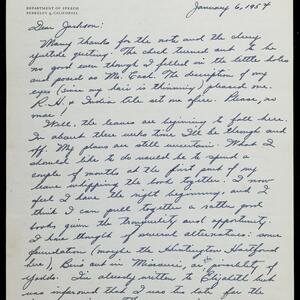 DEPARTMENT OF SPEECH
BERKELEY 4, CALIFORNIA
January 6, 1954
Dear Jackson:
Many thanks for the note and the cheery
yuletide greeting. The check turned out to be
no good even though I filled in the little holes
and posed as Mr. Cash. The description of my
eyes (since my hair is thinning) pleased me.
R.H. & Indian tale set me afire. Please, no
more!
Well, the leaves are beginning to fall here.
In about three weeks time I'll be through and
off. My plans are still uncertain. What I
should like to do would be to spend a
couple of months at the first part of my
leave whipping the book together. I now
feel I have the right beginning, and I
think I can pull together a rather good
book, given the tranquility and opportunity.
I have thought of several alternatives: some
foundation (maybe the Huntington Hartford
here), Ben out in Missouri, or possibly
Yaddo. I'm already written to Elizabeth but
was informed that I was too late for the